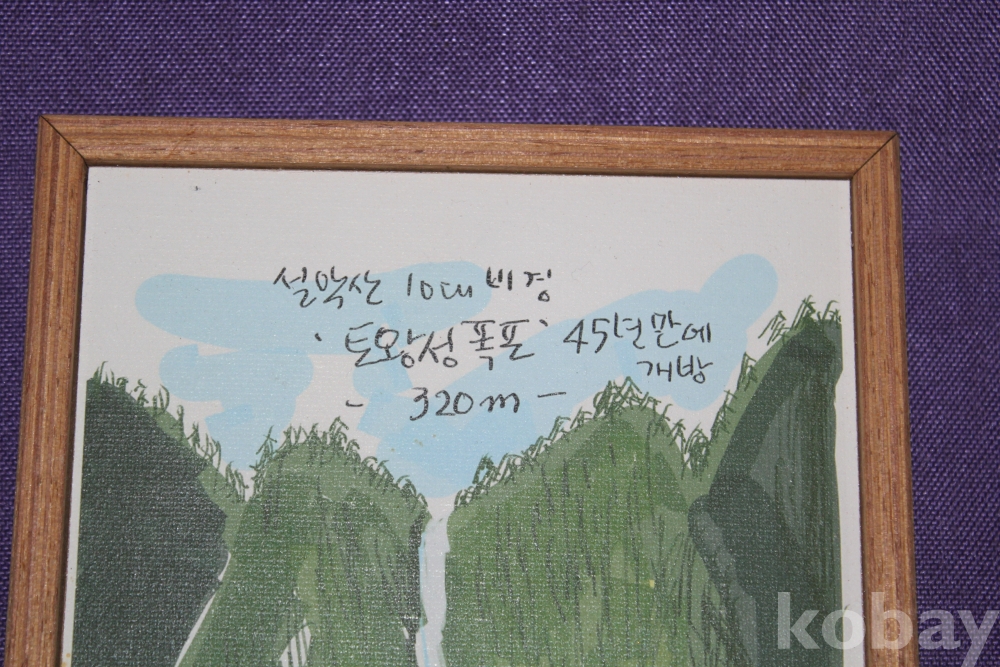 설악산 10대 비경
'토왕성폭포' 45년만에
개방
- 320m -
kobay